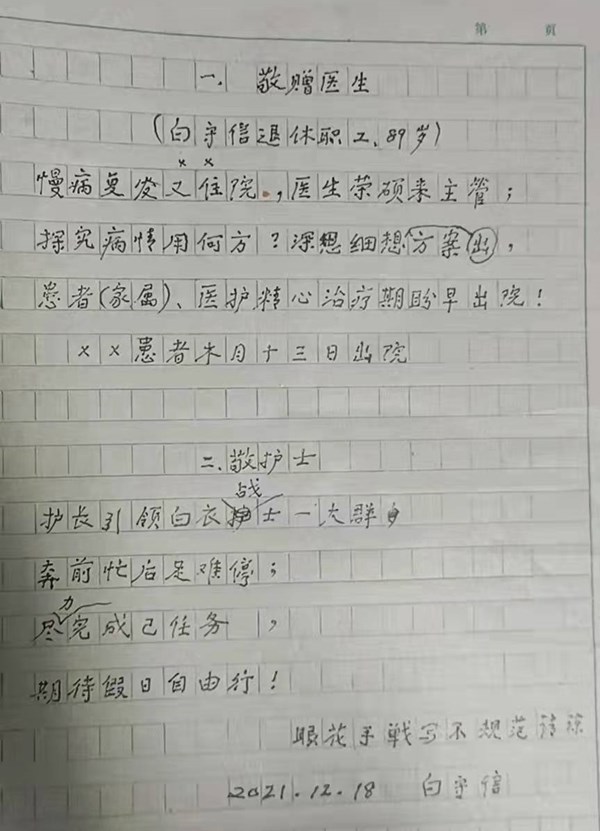 第 页
一. 敬赠医生
(白守信退休职工, 89岁)
慢病复发又住院, 医生荣硕来主管;
探究病情用何方? 深想细想方案出,
患者(家属)、医护精心治疗期盼早出院!
××患者本月十三日出院
二. 敬护士
护长引领白衣战士一大群
奔前忙后足难停;
尽力完成已任务,
期待假日自由行!
眼花手战写不规范请谅
2021.12.18 白守信